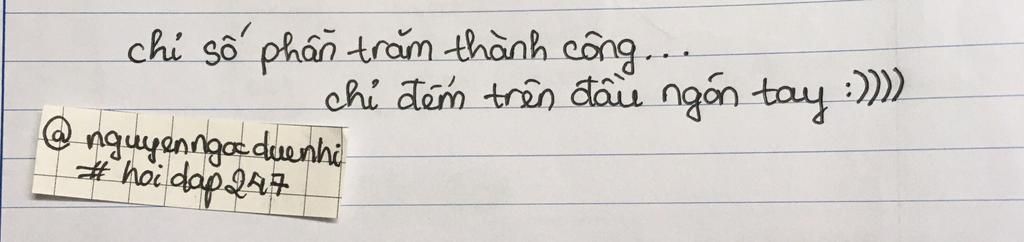 chỉ số phần trăm thành công...
chỉ đếm trên đầu ngón tay :))))
@ nguyenngocduenhi
# hoidap247